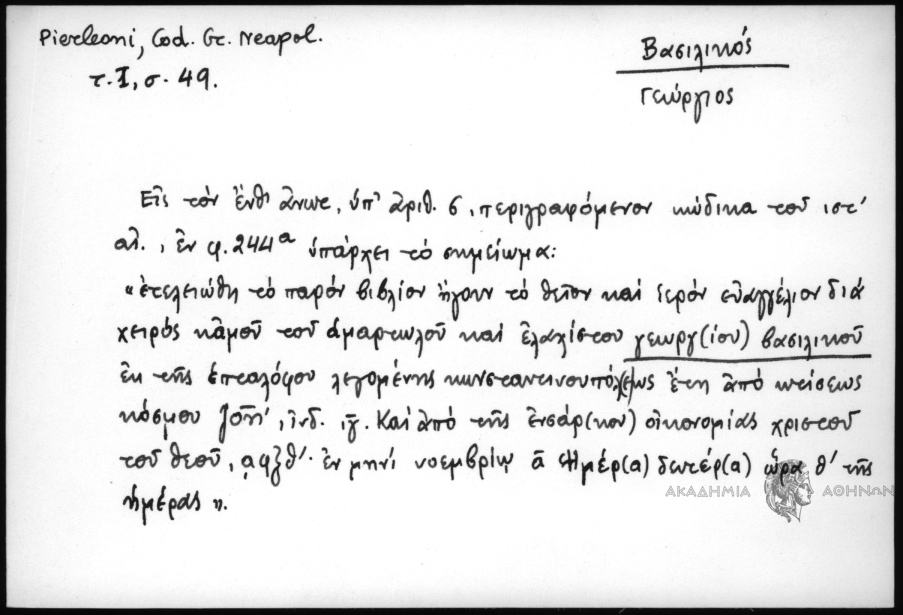 Pierleoni, Cod. Gr. Neapol.
τ. I, σ. 49.
Βασιλικός
Γεώργιος
Εἰς τὸν ἔνθ' ἄνωτ. ὑπ' ἀριθ. 6, περιγραφόμενον κώδικα τοῦ ιστ'
αἰ., ἐν φ. 244α ὑπάρχει τὸ σημείωμα:
« ἐτελειώθη τὸ παρὸν βιβλίον ἤγουν τὸ θεῖον καὶ ἱερὸν εὐαγγέλιον διὰ
χειρὸς κἀμοῦ τοῦ ἁμαρτωλοῦ καὶ ἐλαχίστου γεωργ(ίου) βασιλικοῦ
ἐκ τῆς ἑπταλόφου λεγομένης κωνσταντινουπόλ(ε)ως ἔτη ἀπὸ κτίσεως
κόσμου ἰνδ. ιγ. Καὶ ἀπὸ τῆς ἐνσάρ(κου) οἰκονομίας χριστοῦ
τοῦ θεοῦ, ͵αφξθ'. ἐν μηνὶ νοεμβρίῳ ᾱ ἡμέρ(α) δευτέρ(α) ὥρα θ' τῆς
ἡμέρας ».
ΑΚΑΔΗΜΙΑ ΑΘΗΝΩΝ